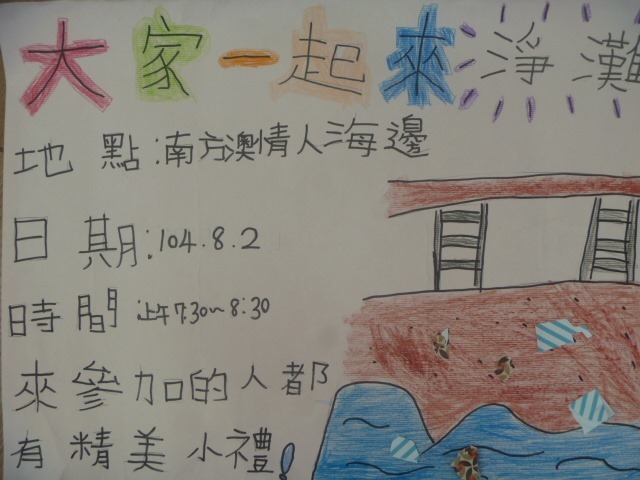 大家一起來淨灘
地點:南方澳情人海邊
日期:104.8.2
時間 上午7:30~8:30
來參加的人都
有精美小禮!